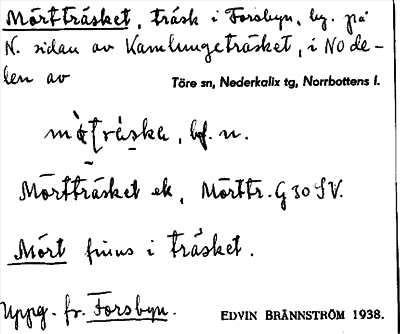 Mörtträsket, träsk i Forsbyn, by. på
N. sidan av Kamlungeträsket, i NO de-
len av
Töre sn, Nederkalix tg, Norrbottens l.
bf. n.
Mörtträsket ek, Mörttr. G 30 SV.
Mört finns i träsket.
Uppg. fr. Forsbyn.
EDVIN BRÄNNSTRÖM 1938.